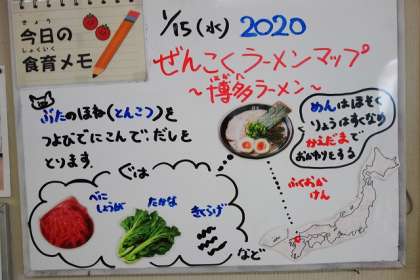 きょう
今日の
しょくいく
食育メモ
1/15(水) 2020
ぜんこくラーメンマップ
はかた
～博多ラーメン～
ぶたのほね(とんこつ)を
つよびでにこんで、だしを
とります。
めんはほそく
りょうはすくなめ
かえだまで
おかわりをする
ぐは
べに
しょうが
たかな
きくらげ
など
ふくおか
けん